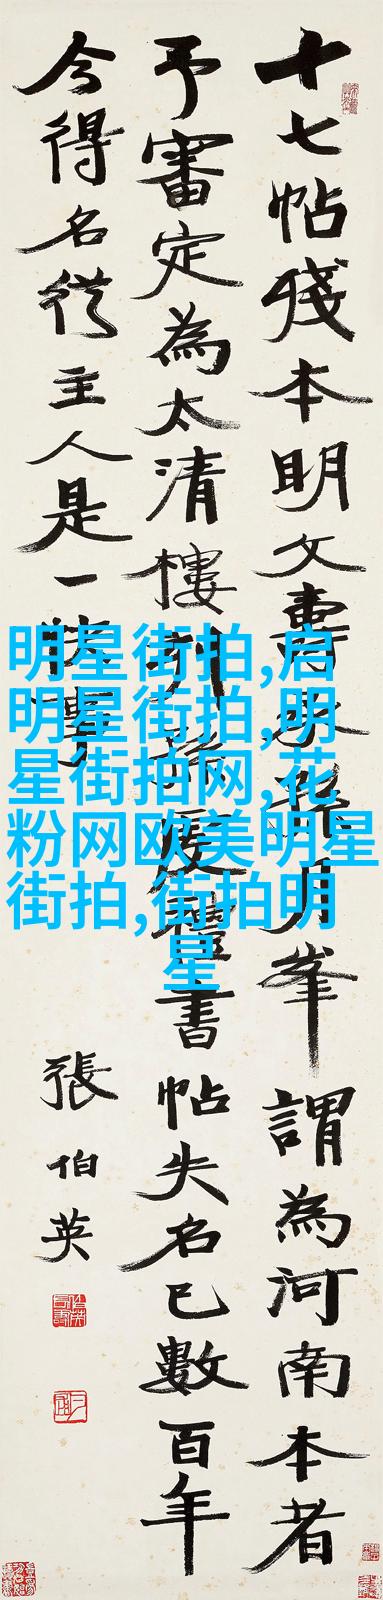 十七帖殘本明文壽承孫月峯謂為河南本者
予審定為太清樓刻孫虔禮書帖失名已數百年
今得名從主人是一快事
張伯英
明星街拍,启
明星街拍,明
星街拍网,花
粉网欧美明星
街拍,街拍明
星